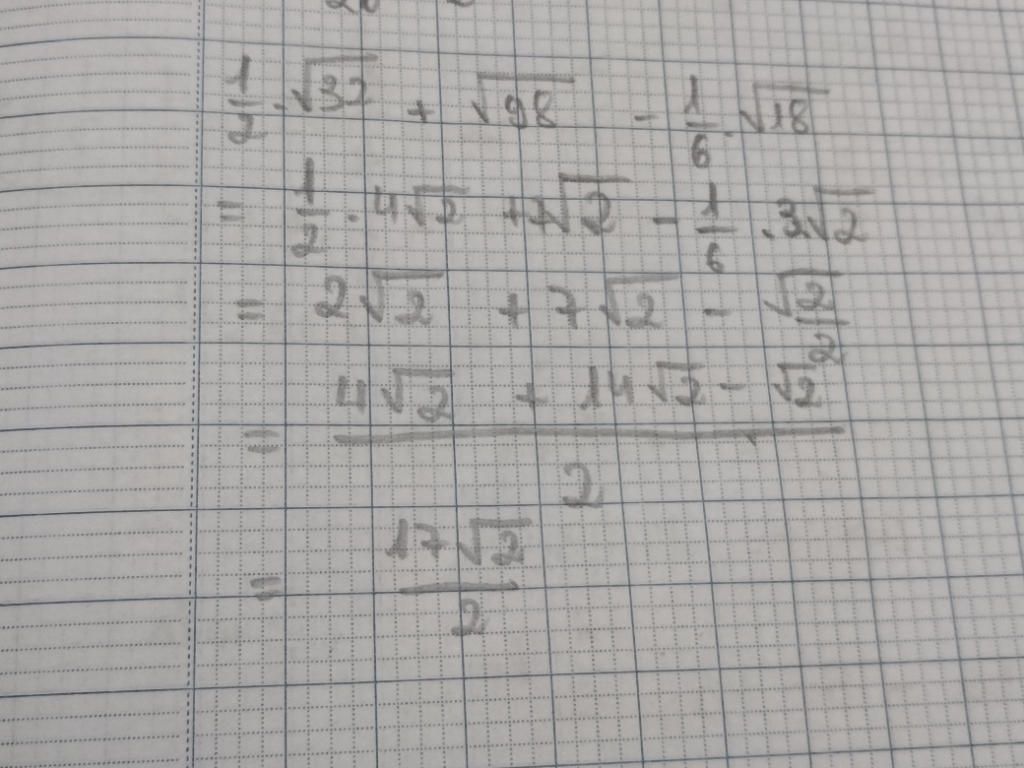 1/2 . √32 + √98 - 1/6 . √18
= 1/2 . 4√2 + 7√2 - 1/6 . 3√2
= 2√2 + 7√2 - √2/2
= (4√2 + 14√2 - √2)/2
= 17√2/2